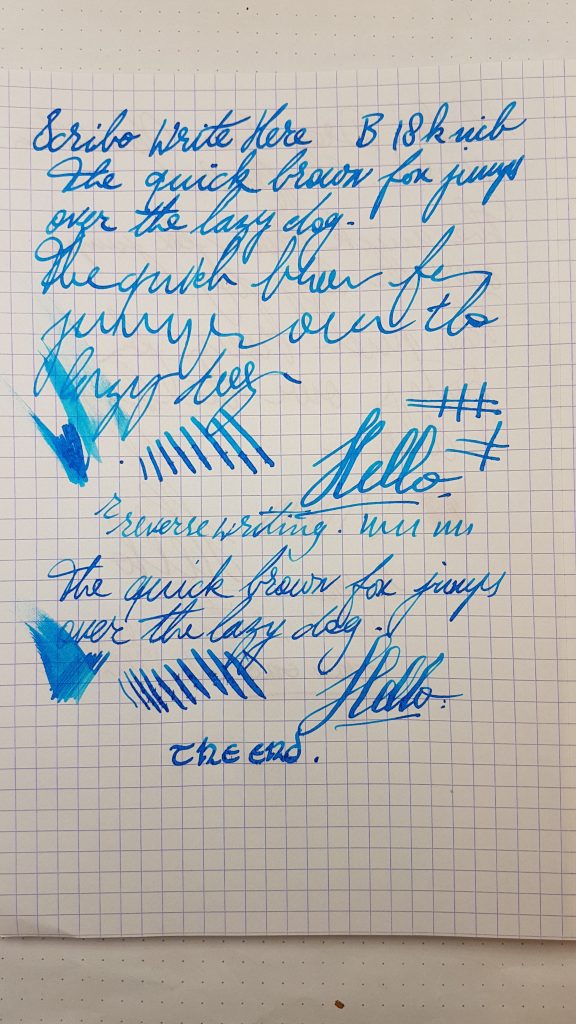 Scribo Write Here B 18k nib
The quick brown fox jumps
over the lazy dog.
The quick brown fox
jumps over the
lazy dog
Hello.
reverse writing. nnn nn
The quick brown fox jumps
over the lazy dog.
Hello.
THE END.